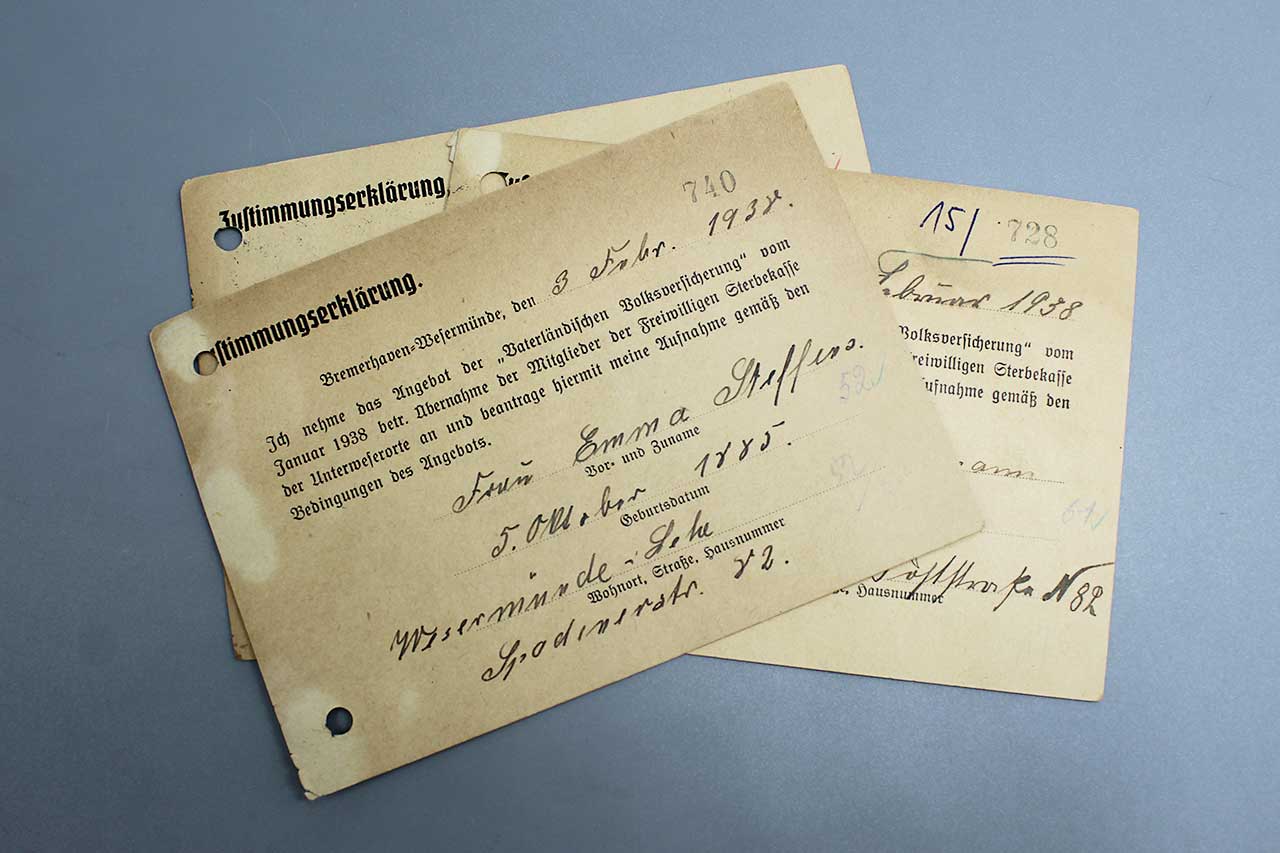 Zustimmungserklärung.
Zus
740
stimmungserklärung.
Bremerhaven-Wesermünde, den 3 Febr. 1938.
Ich nehme das Angebot der „Vaterländischen Volksversicherung“ vom
Januar 1938 betr. Übernahme der Mitglieder der Freiwilligen Sterbekasse
der Unterweserorte an und beantrage hiermit meine Aufnahme gemäß den
Bedingungen des Angebots.
Frau Emma Steffens.
Vor- und Zuname
52
5. Oktober 1885.
Geburtsdatum
Wesermünde-Lehe
Wohnort, Straße, Hausnummer
Spadenerstr. 82.
15/ 728
Februar 1938
Volksversicherung“ vom
Freiwilligen Sterbekasse
Aufnahme gemäß den
ann
Hausnummer
N 82